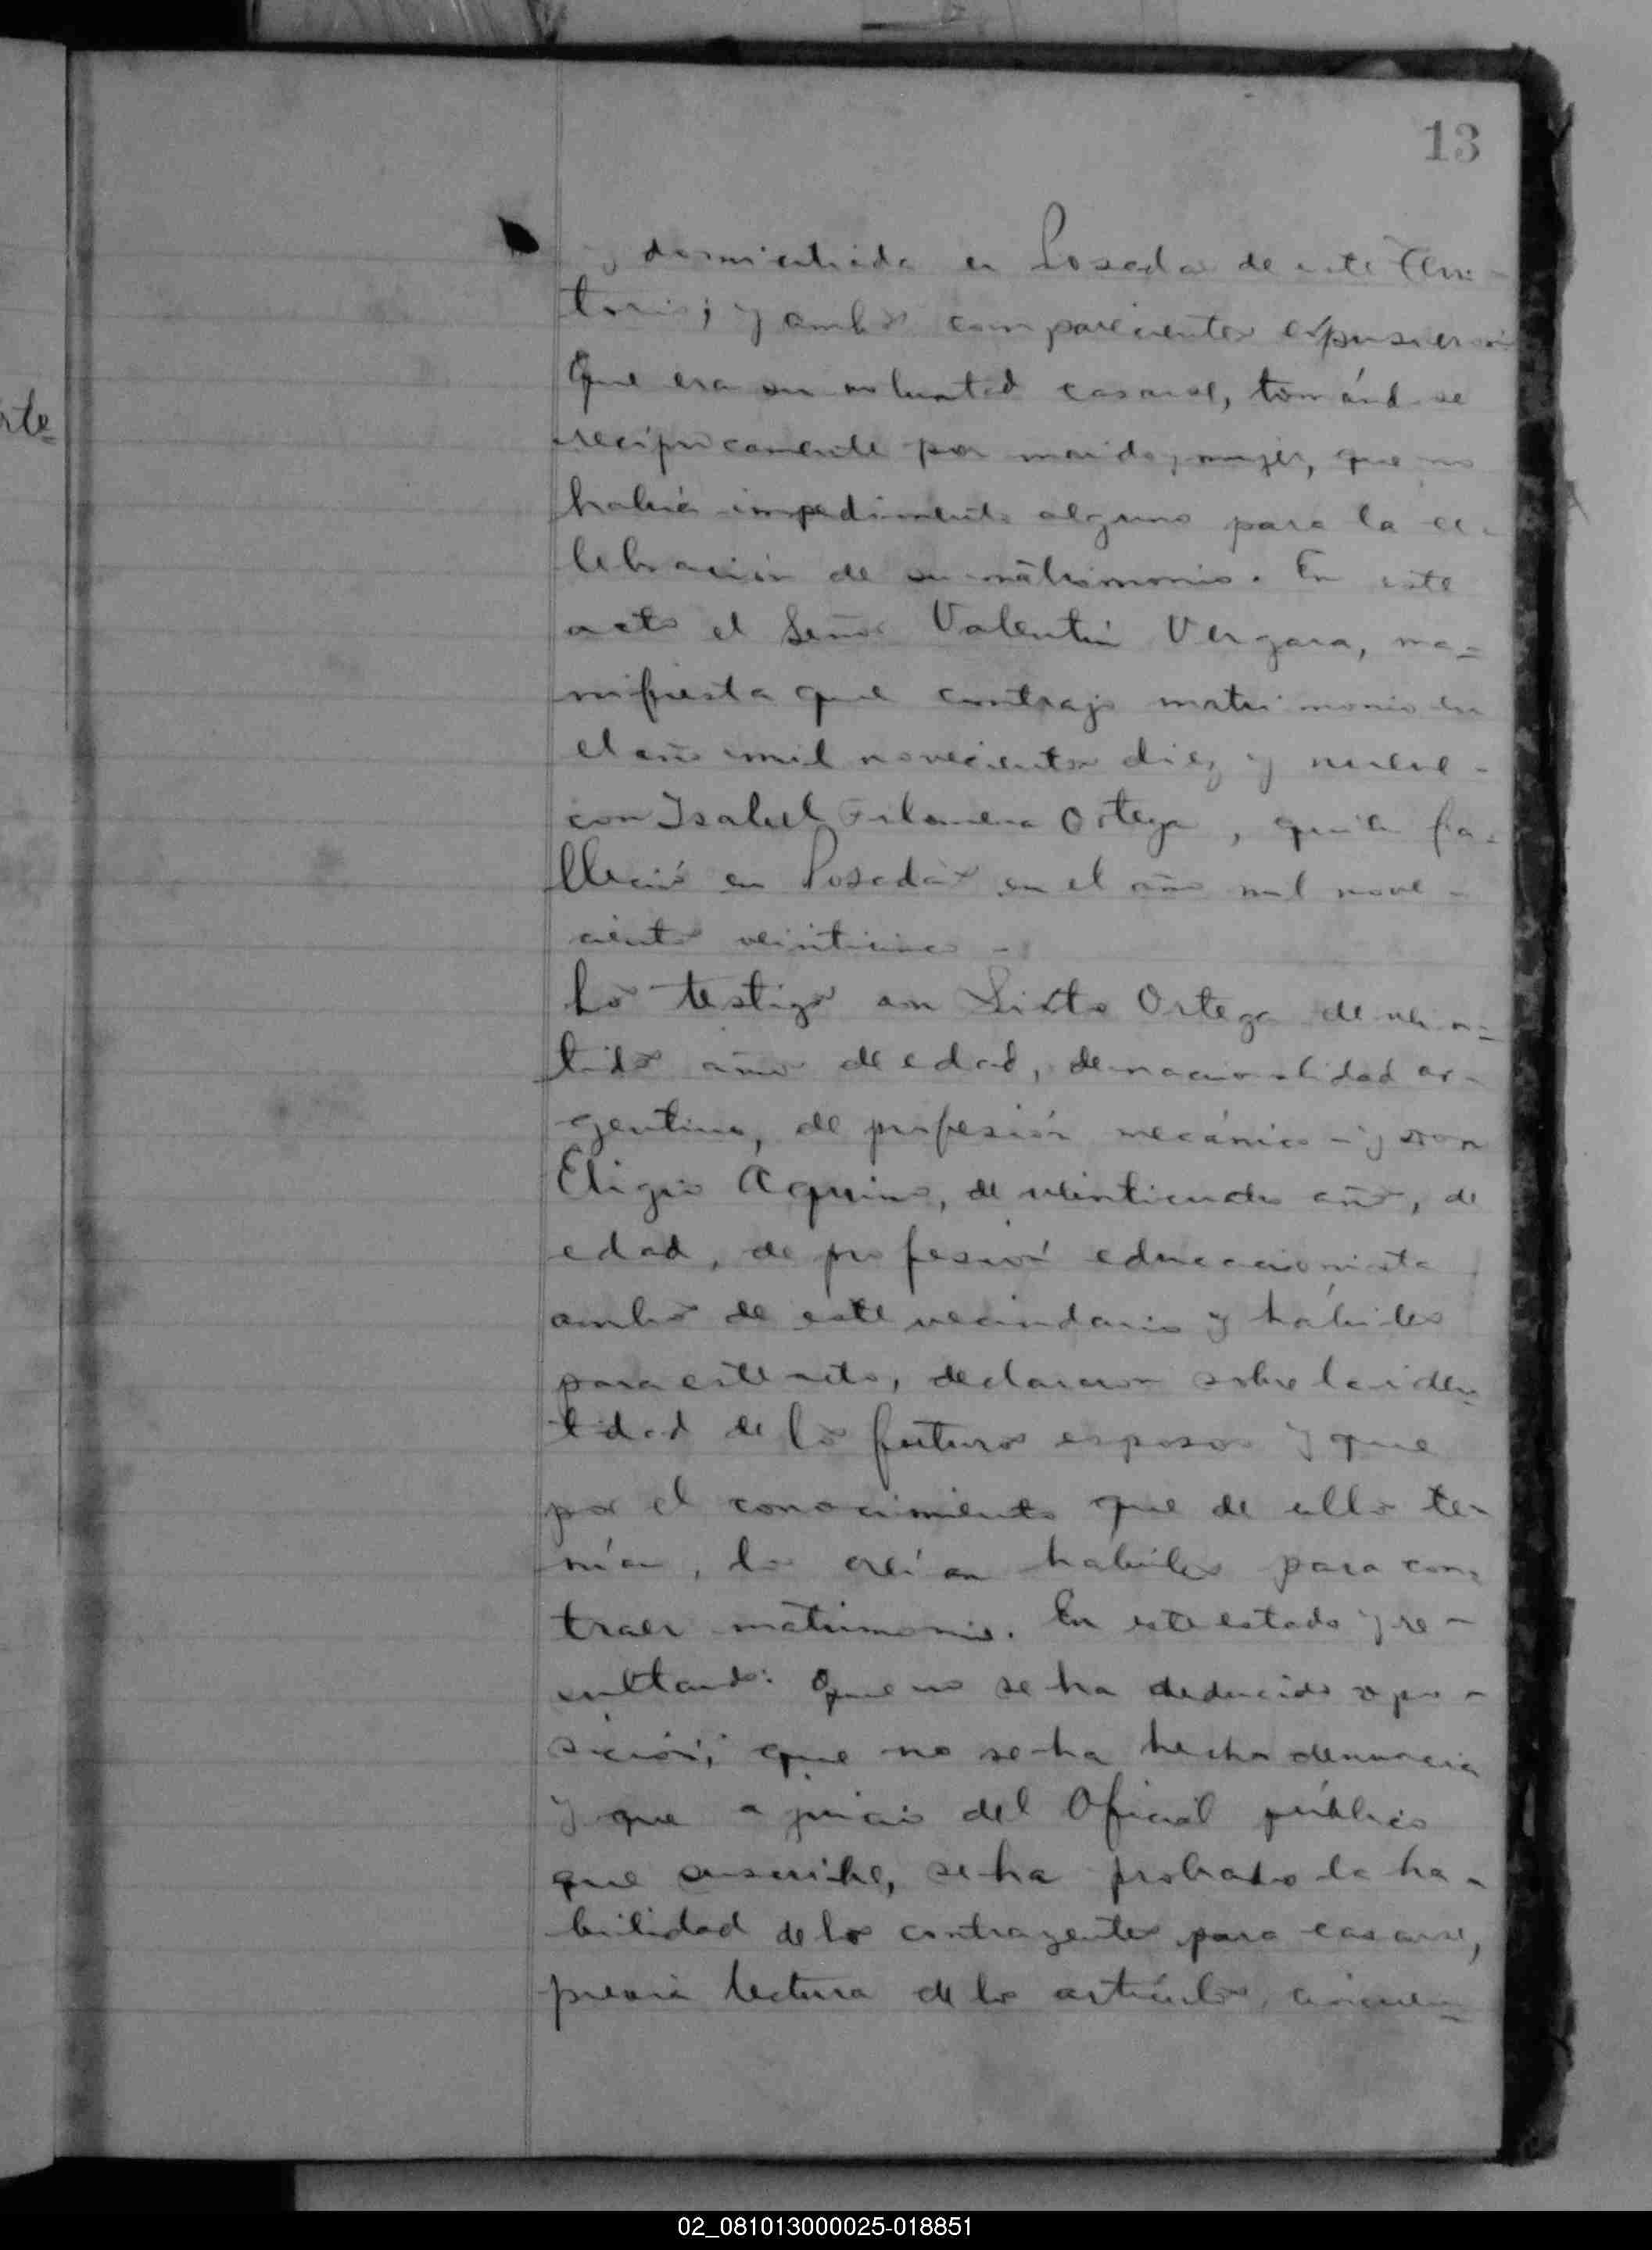 13
rte
y domiciliada en Posadas de este Terri-
torio; y ambos comparecientes expusieron
Que era su voluntad casarse, tomándose
recíprocamente por marido y mujer, que no
había impedimento alguno para la ce-
lebración de su matrimonio. En este
acto el Señor Valentín Vergara, ma=
nifiesta que contrajo matrimonio en
el año mil novecientos diez y nueve -
con Isabel Filomena Ortega, quien fa-
lleció en Posadas en el año mil nove-
cientos veinticinco -
Los testigos son Sixto Ortega de vein=
tidos años de edad, de nacionalidad ar-
gentino, de profesión mecánico - y don
Eligio Aquino, de veinticuatro años, de
edad, de profesión educacionista
ambos de este vecindario y hábiles
para este acto, declararon sobre la iden=
tidad de los futuros esposos y que
por el conocimiento que de ellos te-
nían, los creían hábiles para con=
traer matrimonio. En este estado y re-
sultando: Que no se ha deducido opo-
sición; que no se ha hecho denuncia
y que a juicio del Oficial público
que suscribe, se ha probado la ha-
bilidad de los contrayentes para casarse,
previa lectura de los artículos, cincuen=
02_081013000025-018851